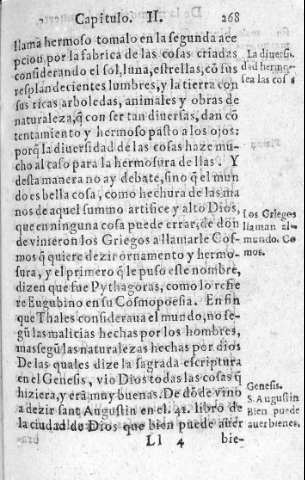 Capitulo. II. 268
llama hermoso tomalo en la segunda ace
pcion por la fabrica de las cosas criadas
considerando el sol, luna, estrellas, cõ sus
resplandecientes lumbres, y la tierra con
sus ricas arboledas, animales y obras de
naturaleza, q̃ con ser tan diuersas, dan cõ
tentamiento y hermoso pasto a los ojos:
porq̃ la diuersidad de las cosas haze mu-
cho al caso para la hermosura dellas. Y
desta manera no ay debate, sino q̃ el mun
do es bella cosa, como hechura de las ma
nos de aquel summo artifice y alto Dios,
que en ninguna cosa puede errar, de don
de vinieron los Griegos a llamarle Cos-
mos q̃ quiere dezir ornamento y hermo-
sura, y el primero q̃ le puso este nombre,
dizen que fue Pythagoras, como lo refie
re Eugubino en su Cosmopoesia. En fin
que Thales consideraua el mundo, no se-
gũ las malicias hechas por los hombres,
mas segũ las naturalezas hechas por dios
De las quales dize la sagrada escriptura
en el Genesis, vio Dios todas las cosas q̃
hiziera, y erã muy buenas. De dõde vino
a dezir sant Augustin en el. 42. libro de
la ciudad de Dios que bien puede auer
Ll 4 bie-
La diuersi
dad hermo-
sea las cosas
Los Griegos
llaman al
mundo. Co
mos.
Genesis.
S. Augustin
Bien puede
auer bienes.